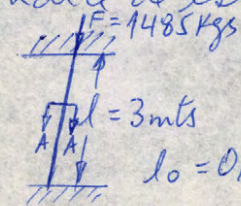 F = 1485 Kgs
l = 3 mts
A A
l₀ = 0,